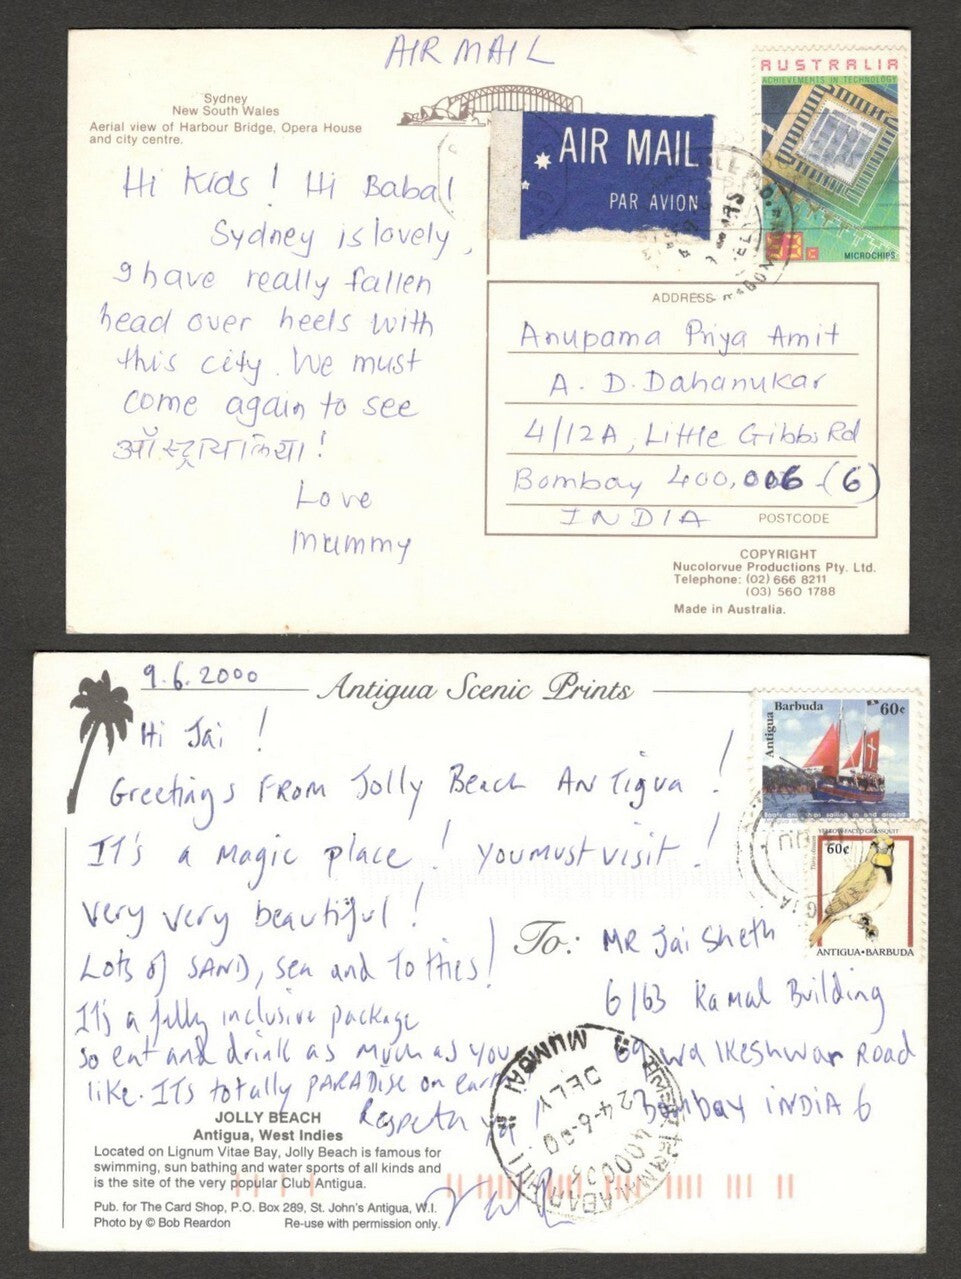 AIR MAIL
Sydney
New South Wales
Aerial view of Harbour Bridge, Opera House
and city centre.
Hi Kids! Hi Baba!
Sydney is lovely,
I have really fallen
head over heels with
this city. We must
come again to see
ऑस्ट्रायलिया!
Love
Mummy
AIR MAIL
PAR AVION
AUSTRALIA
ACHIEVEMENTS IN TECHNOLOGY
MICROCHIPS
ADDRESS
Anupama Priya Amit
A. D. Dahanukar
4/12A, Little Gibbs Rd
Bombay 400,006-(6)
INDIA
POSTCODE
COPYRIGHT
Nucolorvue Productions Pty. Ltd.
Telephone: (02) 666 8211
(03) 560 1788
Made in Australia.
9.6.2000
Antigua Scenic Prints
Hi Jai!
Greetings From Jolly Beach Antigua!
It's a magic place! You must visit!
very very beautiful!
Lots of SAND, sea and
It's a fully inclusive package
so eat and drink as much as you
like. It's totally PARADISE on earth
JOLLY BEACH
Antigua, West Indies
Located on Lignum Vitae Bay, Jolly Beach is famous for
swimming, sun bathing and water sports of all kinds and
is the site of the very popular Club Antigua.
Pub. for The Card Shop, P.O. Box 289, St. John's Antigua, W.I.
Photo by © Bob Reardon Re-use with permission only.
Antigua Barbuda 60¢
YELLOW-FACED GRASSQUIT
60¢
ANTIGUA•BARBUDA
To:
MR Jai Sheth
6/63 Kamal Building
69 Walkeshwar Road
Bombay INDIA 6
MUMBAI
DELY
24-6-00